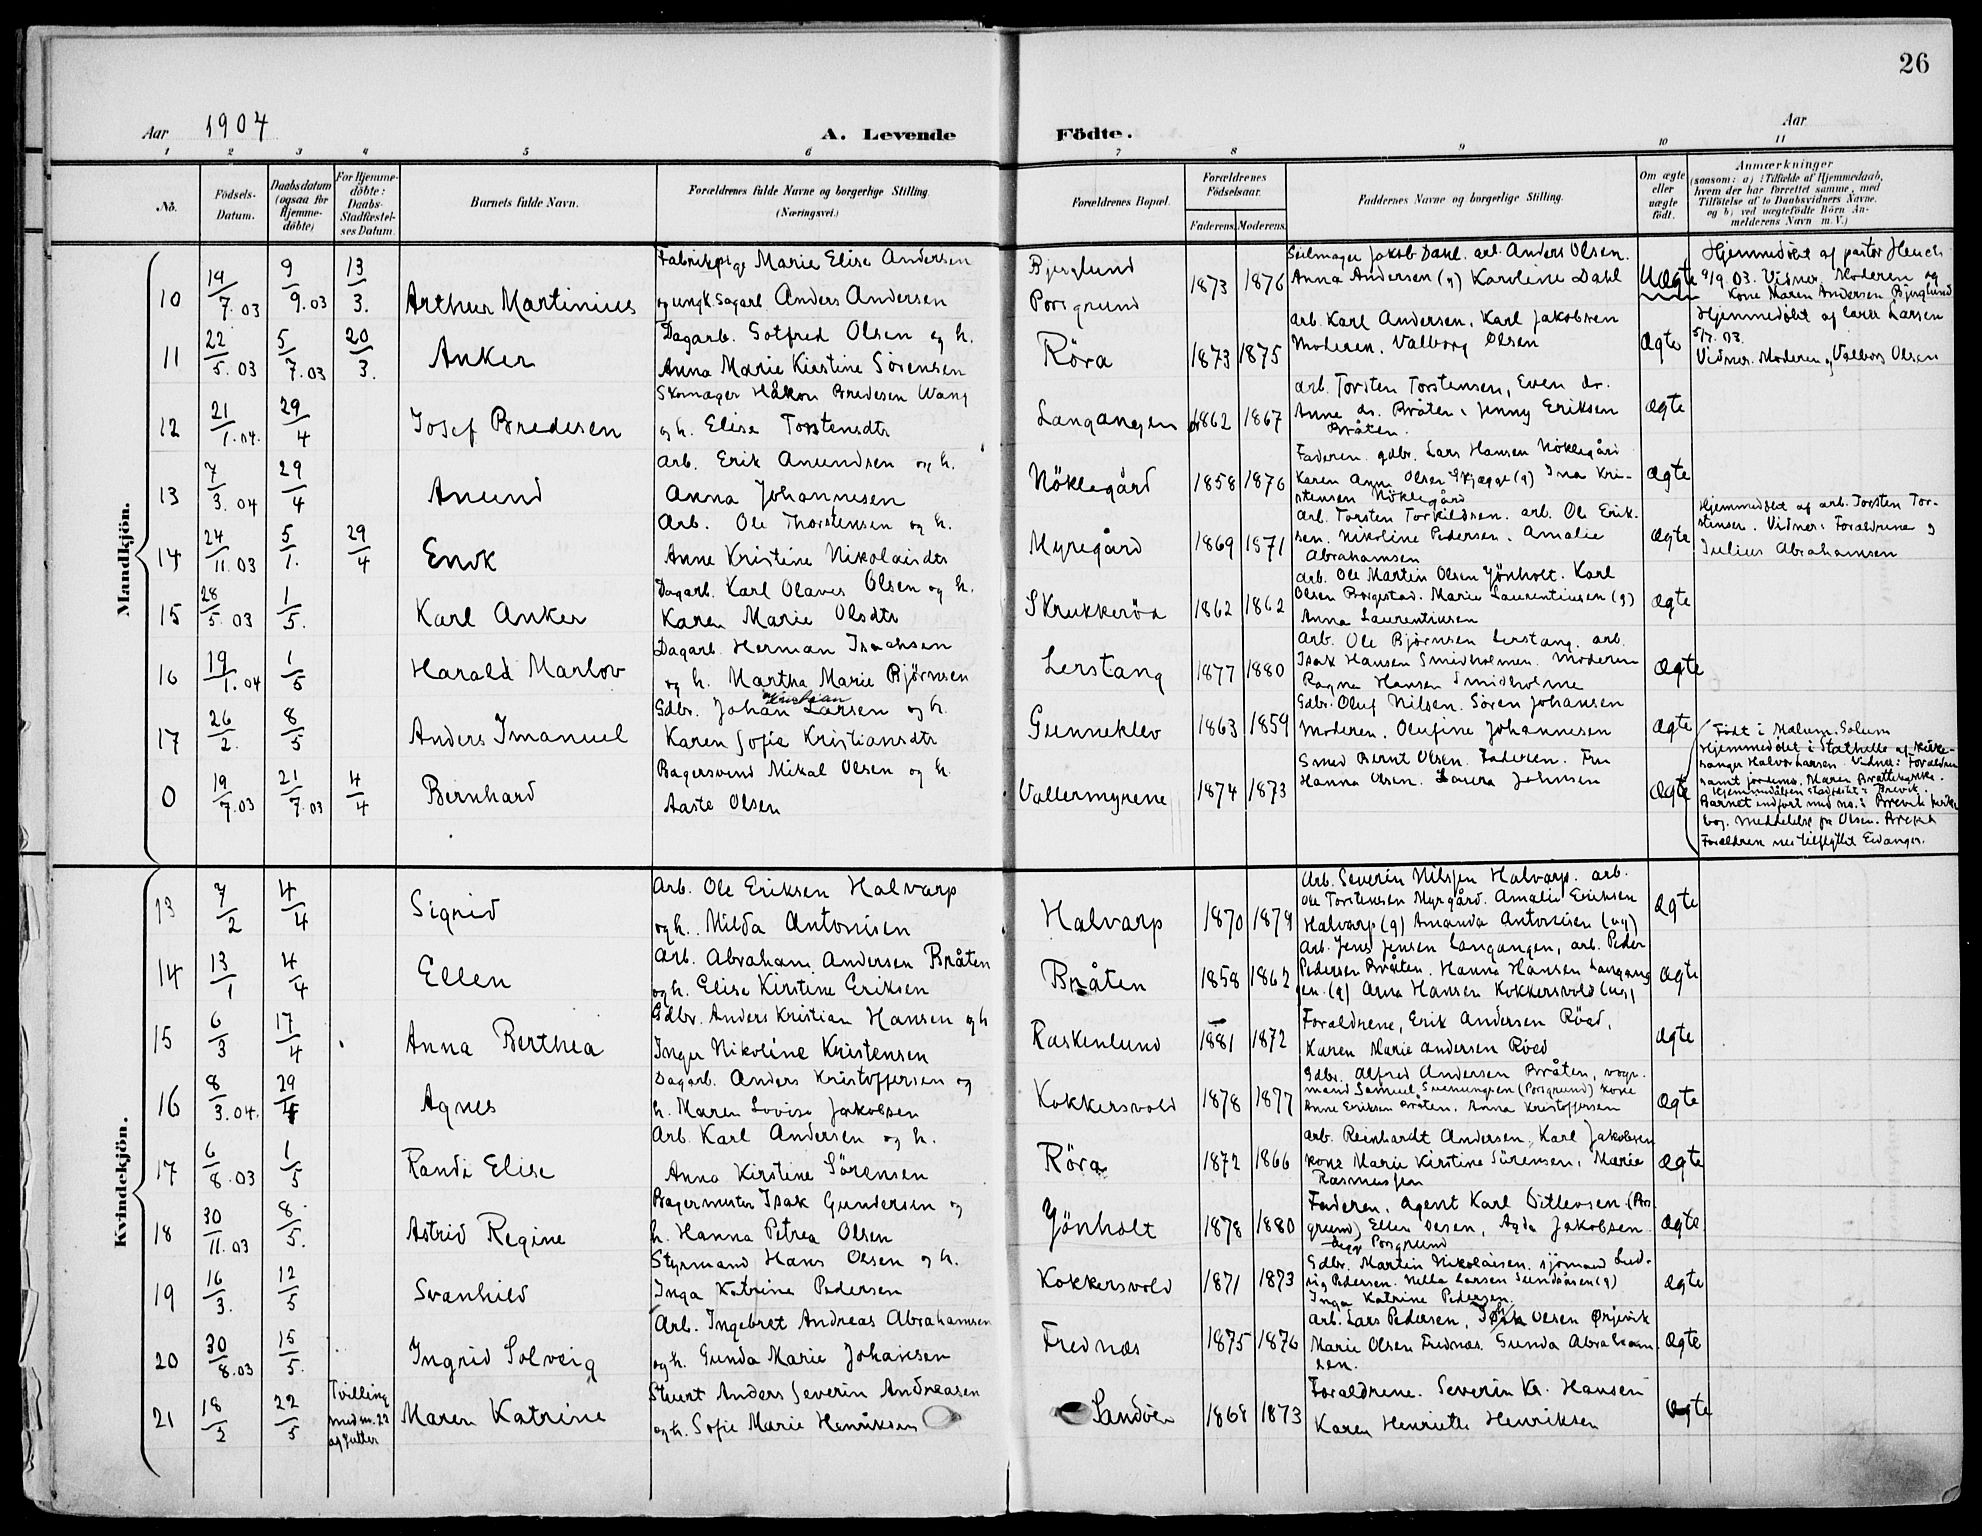 26
Aar 1904 A. Levende Födte. Aar
1 2 3 4 5 6 7 8 9 10 11
No. Födsels-Datum. Daabsdatum (ogsaa for Hjemmedöbte) For Hjemmedöbte: Daabs-Stadfæstelses Datum. Barnets fulde Navn. Forældrenes fulde Navne og borgerlige Stilling. (Næringsvei.) Forældrenes Bopæl. Forældrenes Födselsaar. Faderens. Moderens. Faddernes Navne og borgerlige Stilling. Om ægte eller uægte födt. Anmærkninger (saasom: a) i Tilfælde af Hjemmedaab, hvem der har forrettet samme, med Tilföielse af to Daabsvidners Navne, og b) ved uægtefödte Börn Anmelderens Navn m. V.)
Mandkjön.
10 19/7.03 9/9.03 13/3. Arthur Martinius
Fabrikpige Marie Elise Andersen
og ungk. Sagarb. Anders Andersen
Bjerglund
Porsgrund
1873 1876
Seilmager Jakob Dahl. arb. Anders Olsen.
Anna Andersen (g) Karoline Dahl
Uægte
Hjemmedøbt af pastor Heuch
9/9 03. Vidner. Moderen og
Kone Maren Andersen Bjerglund
11 22/5.03 5/7.03 20/3. Anker
Dagarb. Gotfred Olsen og h.
Anna Marie Kirstine Sörensen
Röra 1873 1875
arb. Karl Andersen. Karl Jakobsen
Moderen. Valborg Olsen
ægte
Hjemmedøbt af lærer Larsen
5/7. 03.
Vidner. Moderen og Valborg Olsen
12 21/1.04. 29/4 Josef Bredesen
Skomager Håkon Bredesen Wang
og h. Elise Torstensdtr
Langangen 1862 1867
arb. Torsten Torstensen, Even do.
Anne do. Bråten. Jenny Eriksen
Bråten.
ægte
13 7/3.04 29/4 Anund
Arb. Erik Anundsen og h.
Anna Johannesen
Nöklegård 1858 1876
Faderen. gdbr. Lars Hansen Nöklegård
Karen Ann Olsen Skjegge (g) Ina Kri-
stensen Nöklegård
ægte
14 24/11.03 5/1. 29/4 Envk
Arb. Ole Thorstensen og h.
Anne Kristine Nikolaisdtr
Myregård 1869 1871
arb. Torsten Torkildsen. arb. Ole Erik-
sen. Nikoline Pedersen. Amalie
Abrahamsen
ægte
Hjemmedøbt af arb. Torsten Tor-
stensen. Vidner: Forældrene og
Julius Abrahamsen
15 28/5.03 1/5. Karl Anker
Dagarb. Karl Olaves Olsen og h.
Karen Marie Olsdtr
Skrukkeröd 1862 1862
arb. Ole Martin Olsen Yönholt. Karl
Olsen Borgestad. Marie Laurentiusen (g)
Anna Laurentiusen
ægte
16 19/1.04 1/5 Harald Marlov
Dagarb. Herman Isachsen
og h. Martha Marie Björnsen
Lerstang 1877 1880
arb. Ole Björnsen Lerstang. arb.
Isak Hansen Smidholmen. Moderen
Ragna Hansen Smidholme
ægte
17 26/2. 8/5 Anders Imanuel
Gdbr. Johan Kristian Larsen og h.
Karen Sofie Kristiansdtr
Gunneklev 1863 1859
Gdbr. Oluf Nilsen. Sören Johansen
Moderen. Olufine Johannesen
ægte
0 19/7.03 21/7.03 4/4 Bernhard
Bagersvend Mikal Olsen og h.
Aaste Olsen
Vallermyrene 1874 1873
Smed Bernt Olsen. Faderen. Fru
Hanna Olsen. Laura Johnsen
ægte
Født i Mælum. Solum
Hjemmedøbt i Stathelle af kirke-
sanger Halvor Larsen. Vidner: Forældrene
samt jordemo. Maren Brattekjerke.
Hjemmedåben stadfæstet i Brevik.
Barnet indført med no. i Brevik kirke
bog. Meddelelse fra Olsen. Brevik
Forældrene nu tilflyttet Eidanger.
Kvindekjön.
13 7/2 4/4 Sigrid
Arb. Ole Eriksen Halvarp
og h. Milda Antonisen
Halvarp 1870 1879
Arb. Severin Nilsen Halvarp. arb.
Ole Torstensen Myrgård. Amalie Eriksen
Halvarp (g) Amanda Antonisen (ug)
ægte
14 13/1 4/4 Ellen
Arb. Abraham Andersen Bråten
og h. Elise Kirstine Eriksen
Bråten 1858 1862
Arb. Jens Jensen Langangen, arb. Peder
Pedersen Bråten. Hanna Hansen Langang
en. (g) Anna Hansen Kokkersvold (ug)
ægte
15 6/3 17/4 Anna Berthea
Gdbr. Anders Kristian Hansen og h
Inger Nikoline Kristensen
Raskenlund 1881 1872
Forældrene, Erik Andersen Röed,
Karen Marie Andersen Röed
ægte
16 8/3.04. 29/4 Agnes
Dagarb. Anders Kristoffersen og
h. Maren Lovise Jakobsen
Kokkersvold 1878 1877
Gdbr. Alfred Andersen Bråten, vogn-
mand Samuel Svenungsen (Porsgrund) kone
Anne Eriksen Bråten. Anna Kristoffersen
ægte
17 6/8.03 1/5 Randi Elise
Arb. Karl Andersen og h.
Anna Kirstine Sörensen
Röra 1872 1866
arb. Reinhardt Andersen, Karl Jakobsen
kone Marie Kirstine Sörensen, Marie
Rasmussen
ægte
18 30/11.03 8/5. Astrid Regine
Bagermester Isak Gundersen og
h. Hanna Petrea Olsen
Yönholt 1878 1880
Faderen, agent Karl Ditlevsen (Pors
grund) Ellen Olsen, Agda Jakobsen
Porsgrund
ægte
19 16/3. 12/5 Svanhild
Styrmand Hans Olsen og h.
Inga Katrine Pedersen
Kokkersvold 1871 1873
Gdbr. Martin Nikolaisen. sjömand Lud-
vig Pedersen. Nella Larsen Sundåsen (g)
Inga Katrine Pedersen.
ægte
20 30/8.03 15/5. Ingrid Solveig
Arb. Ingebret Andreas Abrahamsen
og h. Gunda Marie Johansen
Frednæs 1875 1876
Arb. Lars Pedersen, Olsen Ørjevik
Marie Olsen Frednæs. Gunda Abraham
sen.
ægte
21 18/2 22/5 Tvilling med m. 22 Maren Katrine
Stuert Anders Severin Andreasen
og h. Sofie Marie Henriksen
Sandöen 1868 1873
Forældrene. Severin Kr. Hansen
Karen Henriette Henriksen
ægte